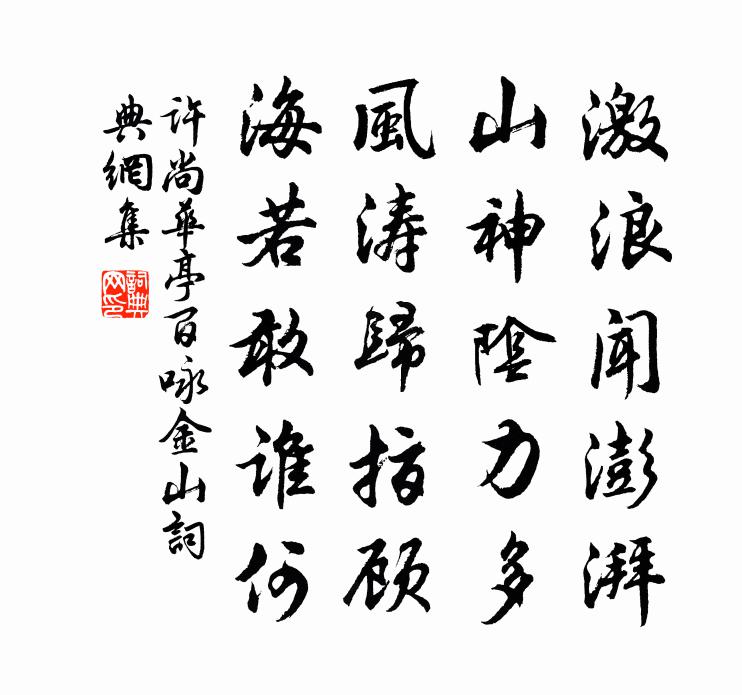 激浪聞澎湃
山神陰力多
風濤歸指顾
海若敢誰何
許尚華亭百咏金山詞
典網集
詞典網印